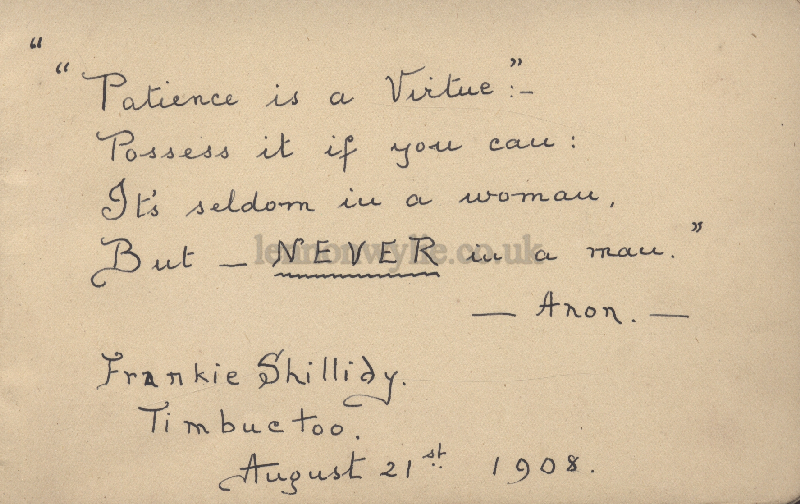 “
“Patience is a Virtue”:-
Possess it if you can:
It's seldom in a woman,
But — NEVER in a man.”
— Anon. —
Frankie Shillidy.
Timbuctoo.
August 21st 1908.
lennonwylie.co.uk